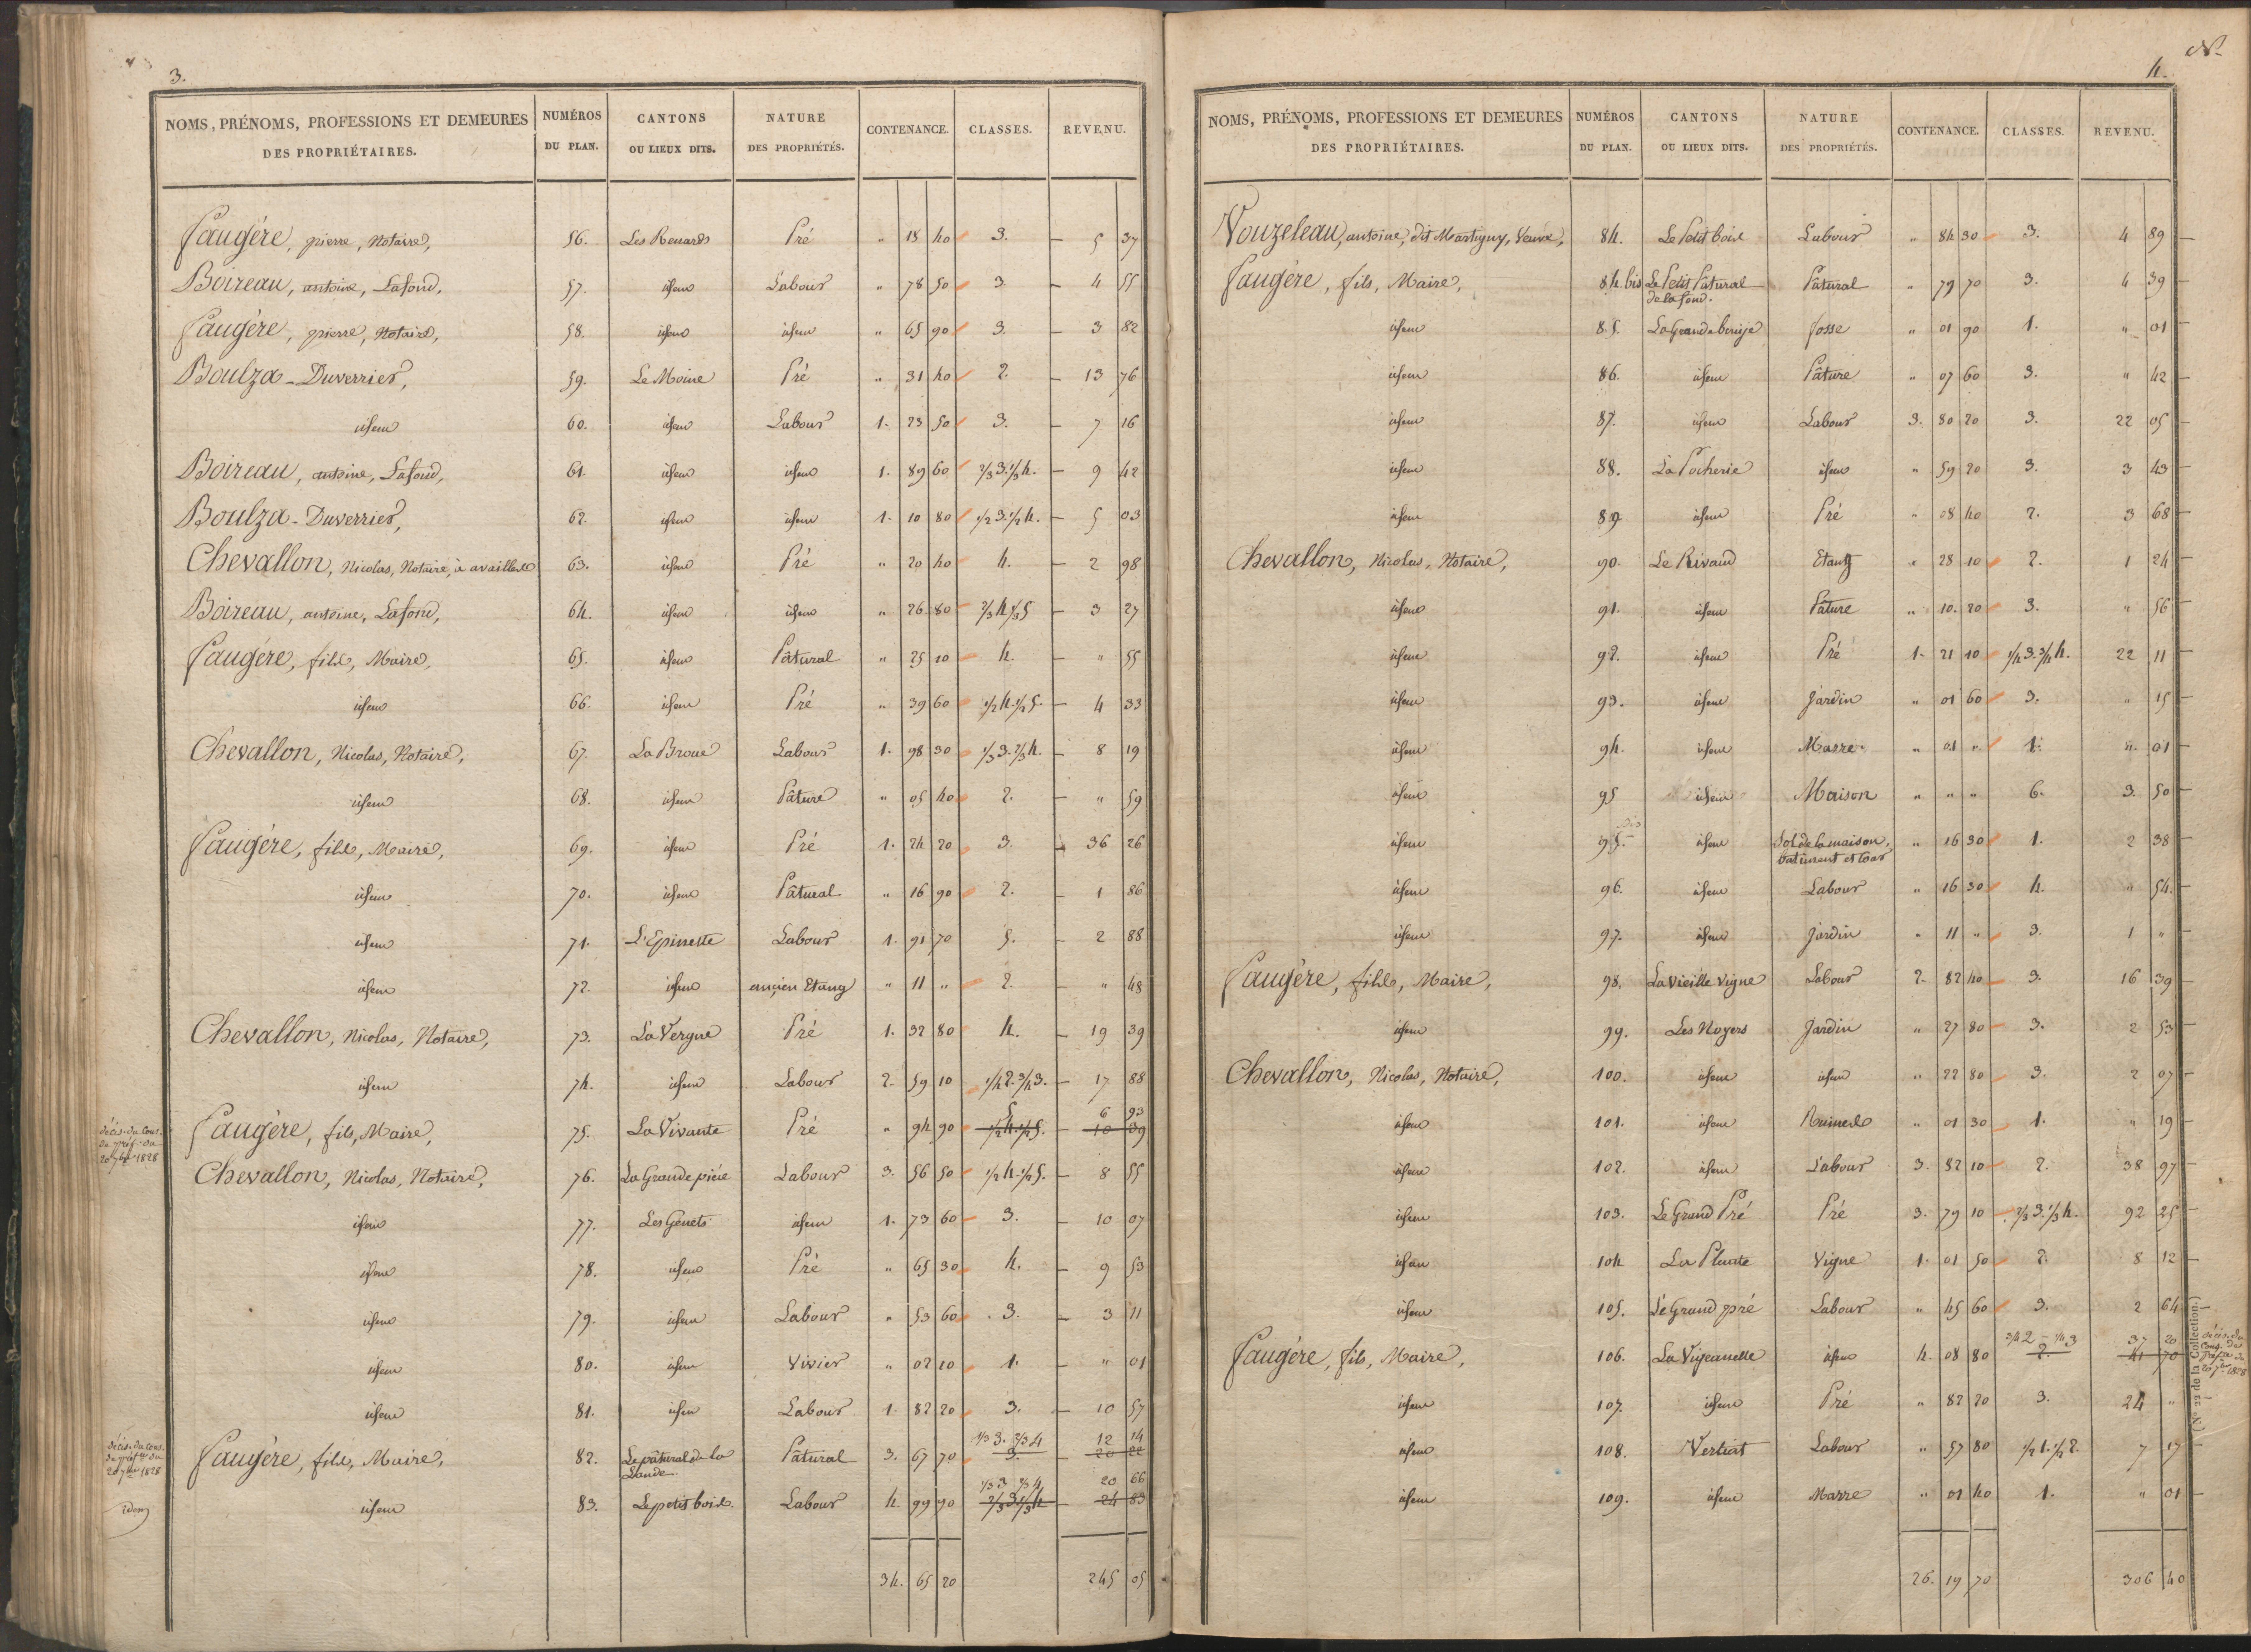 3.
NOMS, PRÉNOMS, PROFESSIONS ET DEMEURES DES PROPRIÉTAIRES. NUMÉROS DU PLAN. CANTONS OU LIEUX DITS. NATURE DES PROPRIÉTÉS. CONTENANCE. CLASSES. REVENU.
Faugère, pierre, Notaire, 56. Les Renards Pré " 18 40 3. 5 37
Boireau, antoine, Lafond, 57. idem Labour " 78 50 3. 4 55
Faugère, pierre, Notaire, 58. idem idem " 65 90 3. 3 82
Boulza-Duverrier, 59. Le Moine Pré " 31 40 2. 13 76
idem 60. idem Labour 1. 23 50 3. 7 16
Boireau, antoine, Lafond, 61. idem idem 1. 89 60 2/3 3. 1/3 4. 9 42
Boulza-Duverrier, 62. idem idem 1. 10 80 1/2 3. 1/2 4. 5 03
Chevallon, Nicolas, Notaire, à availles 63. idem Pré " 20 40 4. 2 98
Boireau, antoine, Lafond, 64. idem idem " 26 80 2/3 4 1/3 5 3 27
Faugère, fils, Maire, 65. idem Pâtural " 25 10 4. " 55
idem 66. idem Pré " 39 60 1/2 4. 1/2 5. 4 33
Chevallon, Nicolas, Notaire, 67. La Broue Labour 1. 98 30 1/3 3. 2/3 4. 8 19
idem 68. idem Pâture " 05 40 2. " 59
Faugère, fils, Maire, 69. idem Pré 1. 24 20 3. 36 26
idem 70. idem Pâtural " 16 90 2. 1 86
idem 71. L'Epinette Labour 1. 91 70 5. 2 88
idem 72. idem ancien Etang " 11 " 2. " 48
Chevallon, Nicolas, Notaire, 73. La Vergne Pré 1. 32 80 4. 19 39
idem 74. idem Labour 2. 59 10 1/4 2. 3/4 3. 17 88
décis. du Cons. de préf. du 20 7bre 1828
Faugère, fils, Maire, 75. La Vivante Pré " 94 90 5 1/2 4. 1/2 5. 6 93 10 39
Chevallon, Nicolas, Notaire, 76. La Grande pièce Labour 3. 56 50 1/2 4. 1/2 5. 8 55
idem 77. Les Genets idem 1. 73 60 3. 10 07
idem 78. idem Pré " 65 30 4. 9 53
idem 79. idem Labour " 53 60 3. 3 11
idem 80. idem Vivier " 02 10 1. " 01
idem 81. idem Labour 1. 82 20 3. 10 57
décis. du cons. de préfre du 20 7bre 1828
Faugère, fils, Maire, 82. Le pâtural de la Lande Pâtural 3. 67 70 1/3 3. 2/3 4 3. 12 14 20 22
idem
idem 83. Le petit bois. Labour 4. 99 90 1/3 3 2/3 4 2/3 3 1/3 4 20 66 24 83
34. 65 20 245 05
4.
NOMS, PRÉNOMS, PROFESSIONS ET DEMEURES DES PROPRIÉTAIRES. NUMÉROS DU PLAN. CANTONS OU LIEUX DITS. NATURE DES PROPRIÉTÉS. CONTENANCE. CLASSES. REVENU.
Vouzeleau, antoine, dit Martigny, Veuve, 84. Le Petit bois Labour " 84 30 3. 4 89
Faugère, fils, Maire, 84. bis Le Petit Pâtural de la fond. Pâtural " 79 70 3. 4 39
idem 85. La Grande berige fosse " 01 90 1. " 01
idem 86. idem Pâture " 07 60 3. " 42
idem 87. idem Labour 3. 80 20 3. 22 05
idem 88. La Pocherie idem " 59 20 3. 3 43
idem 89 idem Pré " 08 40 2. 3 68
Chevallon, Nicolas, Notaire, 90. Le Rivaud Etang " 28 10 2. 1 24
idem 91. idem Pâture " 10. 20 3. " 56
idem 92. idem Pré 1. 21 10 1/4 3. 3/4 4. 22 11
idem 93. idem Jardin " 01 60 3. " 15
idem 94. idem Marre " 01 " 1. " 01
idem 95 idem Maison " " " 6. 3. 50
idem 95. bis idem Sol de la maison, batiment et cour " 16 30 1. 2 38
idem 96. idem Labour " 16 30 4. " 54.
idem 97. idem Jardin " 11 " 3. 1 "
Faugère, fils, Maire, 98. La Vieille Vigne Labour 2. 82 40 3. 16 39
idem 99. Les Noyers Jardin " 27 80 3. 2 53
Chevallon, Nicolas, Notaire, 100. idem idem " 22 80 3. 2 07
idem 101. idem Ruines " 01 30 1. " 19
idem 102. idem Labour 3. 82 10 2. 38 97
idem 103. Le Grand Pré Pré 3. 79 10 2/3 3. 1/3 4. 92 25
idem 104 La Plante Vigne 1. 01 50 2. 8 12
idem 105. Le Grand pré Labour " 45 60 3. 2 64
Faugère, fils, Maire, 106. La Vigeanelle idem 4. 08 80 3/4 2 - 1/4 3 2. 37 20 41 70
décis. du Cons. de préfre du 20 7bre 1828
idem 107. idem Pré " 82 20 3. 24 "
idem 108. Vertiat Labour " 57 80 1/2 1. 1/2 2. 7 17
idem 109. idem Marre " 01 40 1. " 01
26. 19 70 306 40
(N° 22 de la Collection.)